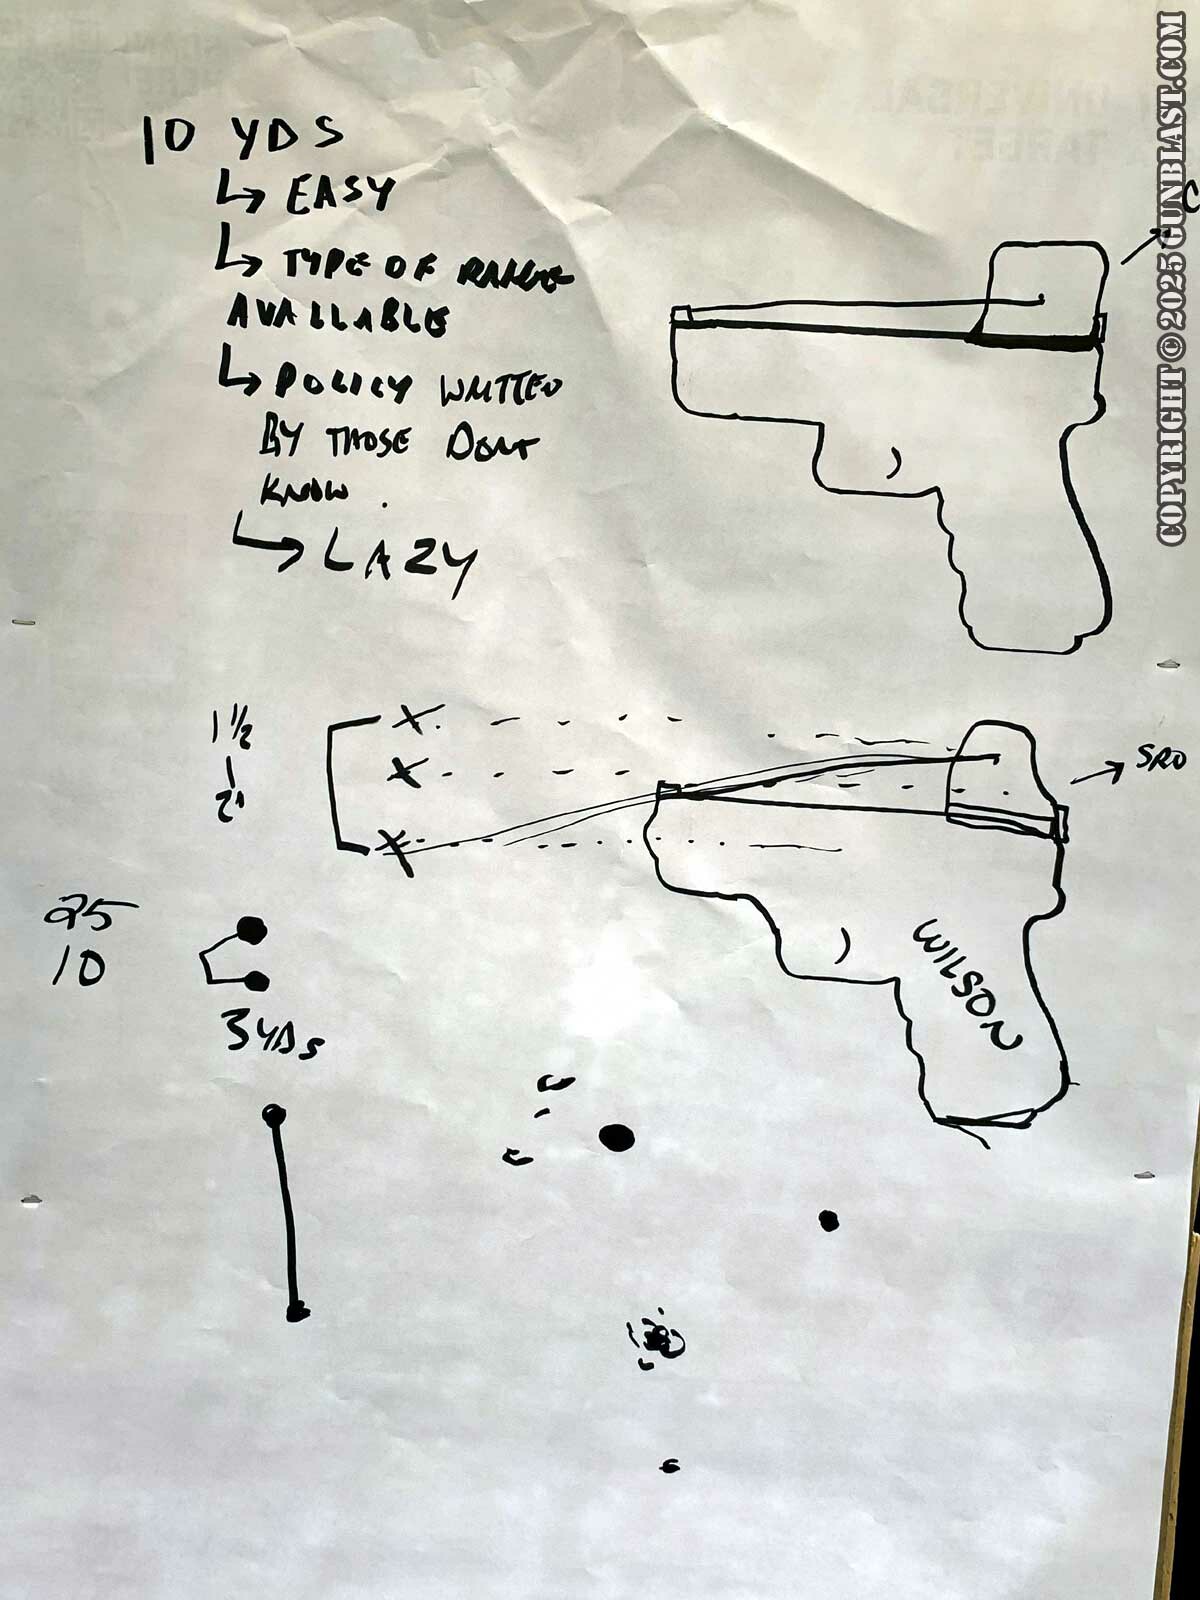 10 YDS
↳ EASY
↳ TYPE OF RANGE
AVAILABLE
↳ POLICY WRITTEN
BY THOSE DONT
KNOW.
↳ LAZY
C
1 1/2
2"
SRO
25
10
3 YDS
WILSON
UNIVERSAL
TARGET
SCAN
HERE
COPYRIGHT © 2025 GUNBLAST.COM